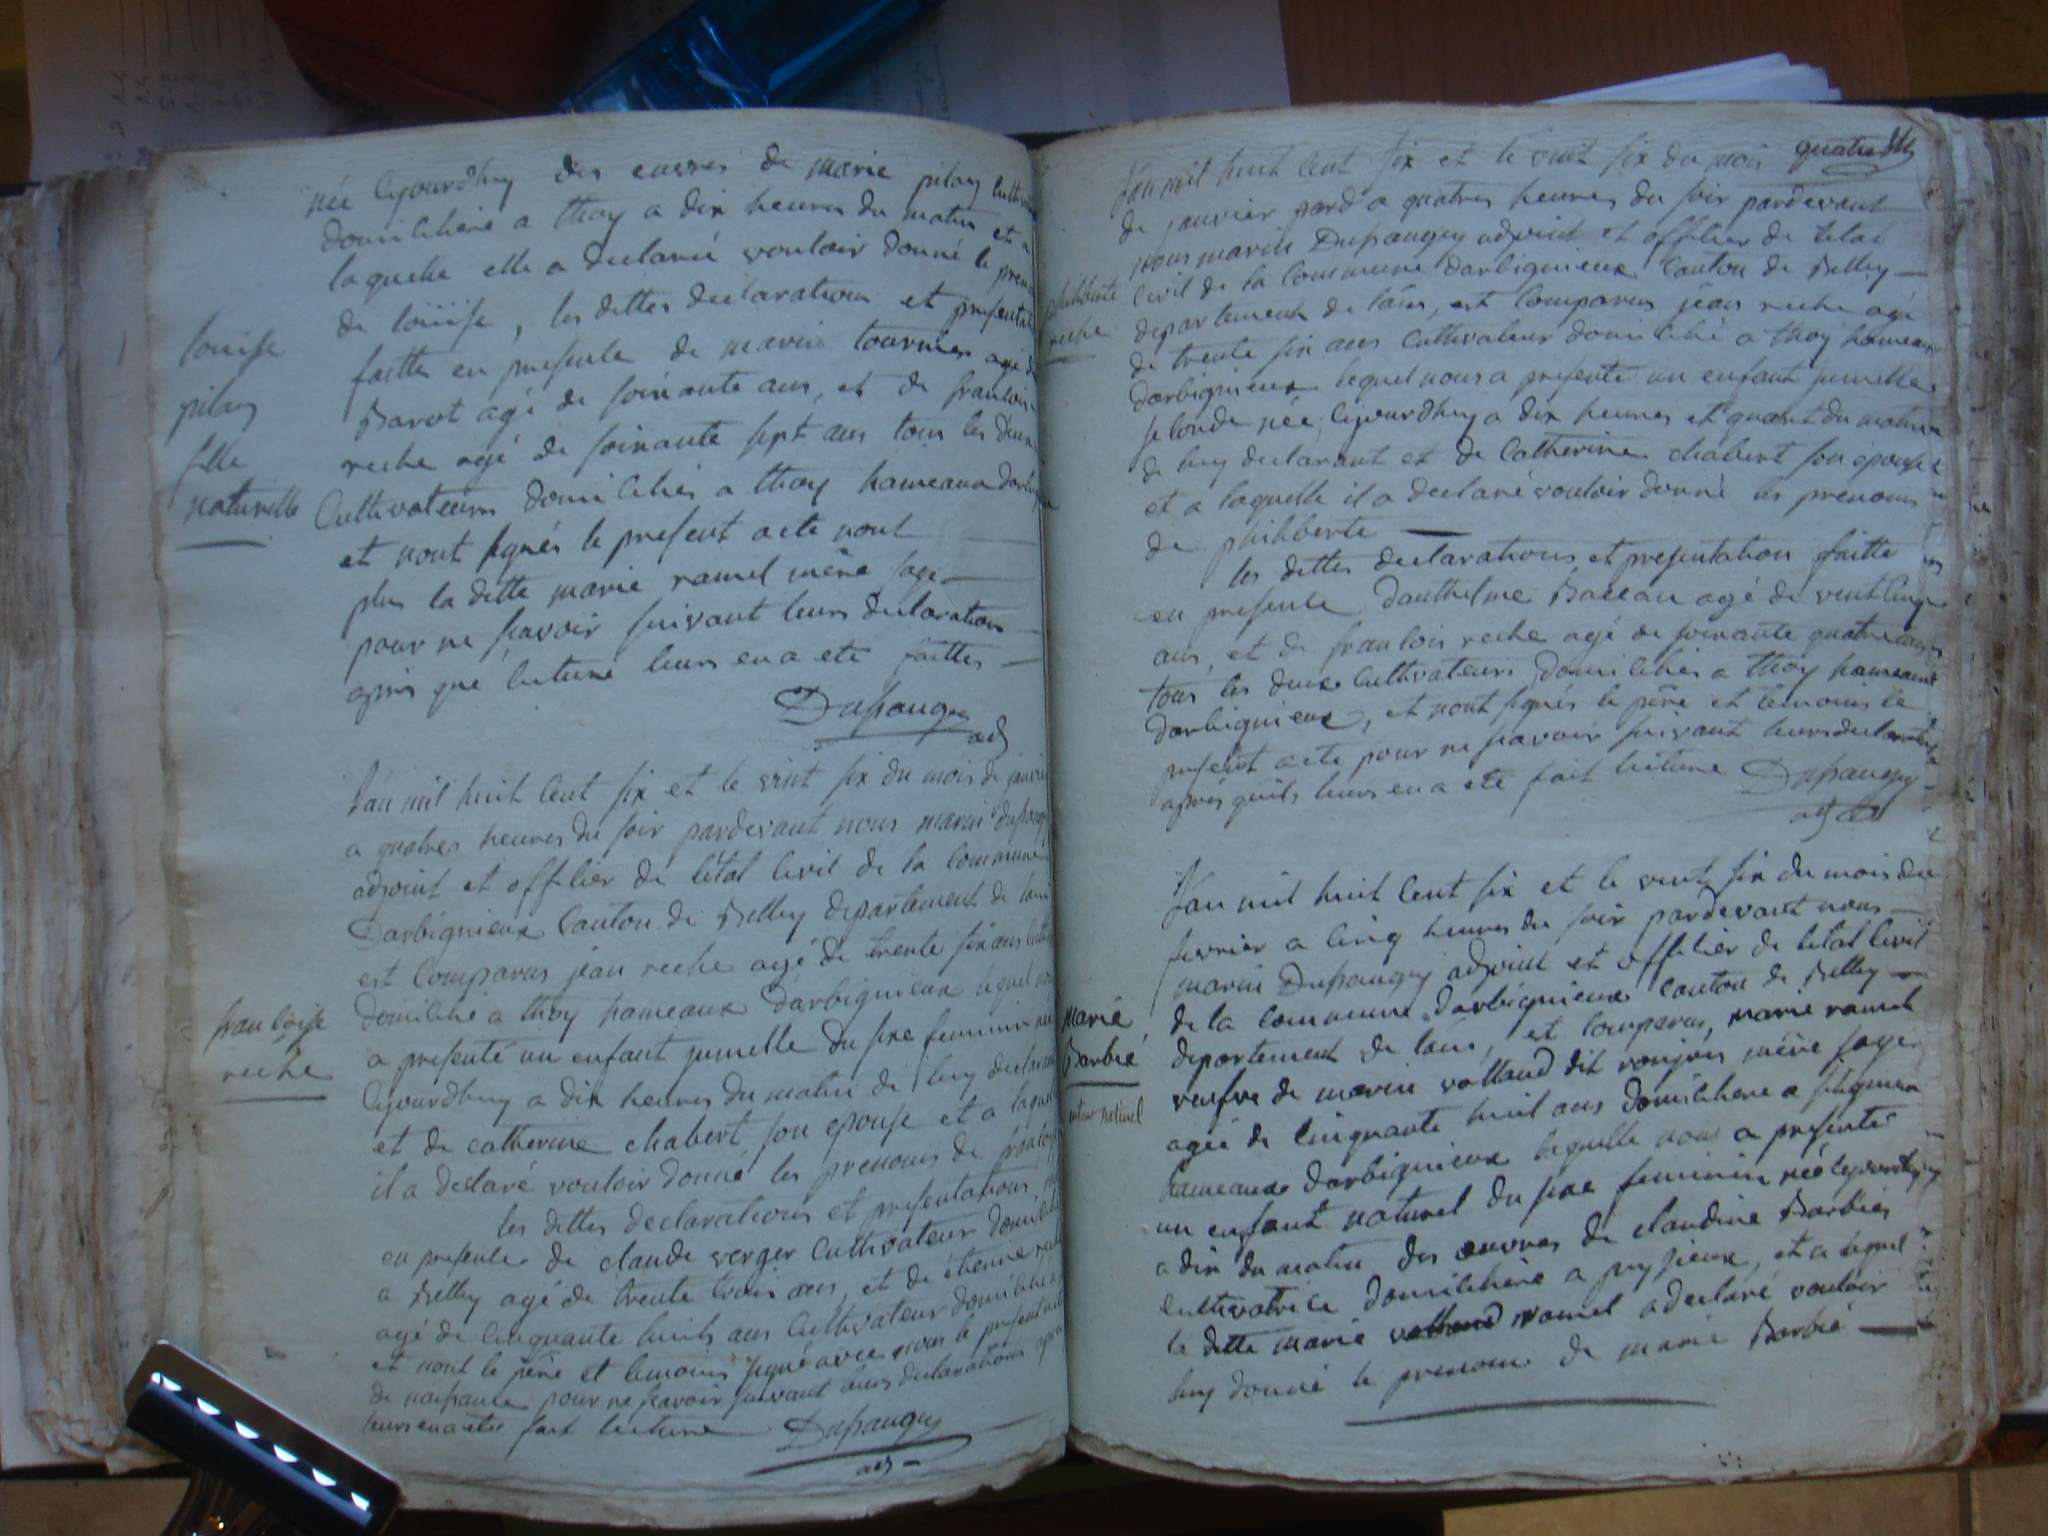 née cejourdhuy des euvres de marie pilay
domiciliere a thoy a dix heures du matin et a
laquelle elle a declaré vouloir donné le
de louise, les dittes declarations et
faittes en presence de marin tournier agé
Barot agé de soixante ans, et de francois
reche agé de soixante sept ans tous les deux
Cultivateurs domiciliés a thoy hameaux
et nont signés le present acte nont
plus la ditte marie ramel mére sage
pour ne scavoir suivant leurs declaration
apres que lecture leurs en a ete faittes
Dupaugey
adj
louise
pilay
fille
naturelle
L'an mil huit cent six et le vint six du mois de janvier
a quatres heures du soir pardevant nous marin
adjoint et officier de l'état civil de la commune
Darbignieux Canton de Belley departement de
est comparus jean reche agé de trente six ans
domicilié a thoy hameaux Darbignieux lequel
a presenté un enfant jumelle du sexe feminin
cejourdhuy a dix heures du matin de luy declarant
et de catherine chabert son epouse et a
il a declaré vouloir donné les prenoms de
les dittes declarations et presentations
en presence de claude verger Cultivateur
a Belley agé de trente trois ans, et de étienne
agé de cinquante huits ans Cultivateur
et nont le père et temoins signé avec nous le present
de naissance pour ne scavoir suivant leurs declarations
leurs en a etés fait lecture Dupaugey
adj
francoise
reche
quatre
L'an mil huit cent six et le vint six du mois
de janvier a quatres heures du soir pardevant
Nous marin Dupaugey adjoint et officier de l'etat
civil de la commune Darbignieux Canton de Belley
departement de lain, est comparus jean reche agé
de trente six ans Cultivateur domicilié a thoy hameau
Darbignieux lequel nous a presenté un enfant jumelle
seconde née cejourdhuy a dix heures et quart du matin
de luy declarant et de Catherine chabert son epouse
et a laquelle il a declaré vouloir donné les prenoms
de philiberte
les dittes declarations et presentation faitte
en presence Danthelme Baccau agé de vint cinq
ans, et de francois reche agé de soixante quatre
tous les deux Cultivateurs domiciliés a thoy hameaux
Darbignieux, et nont signés le père et temoins le
present acte pour ne scavoir suivant
après quils leurs en a ete fait lecture Dupaugey
adj
philiberte
reche
L'an mil huit cent six et le vint six du mois du
fevrier a cinq heures du soir pardevant nous
marin Dupaugey adjoint et officier de letat civil
de la commune Darbignieux canton de Belley
departement de lain, est comparus, marie ramel
veufve de marin volland dit ronjon mére sage
agée de cinquante huit ans domiciliere a
hameaux Darbignieux laquelle nous a presenté
un enfant naturel du sexe feminin née
a dix du matin des euvres de claudine Barbier
cultivatrice domicilière a pugsieux, et a lequel
la ditte marie ramel a declaré vouloir
luy donné le prenom de marie Barbié
Marie
Barbié
naturel